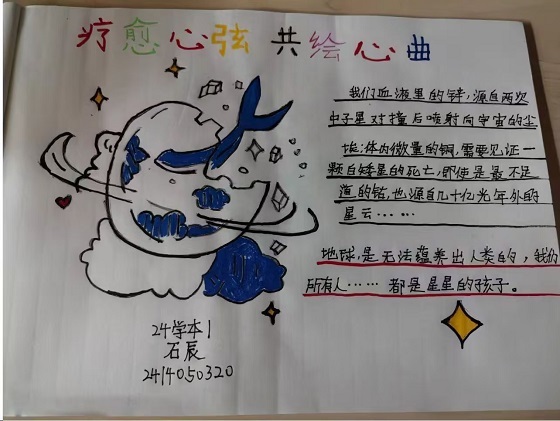 疗愈心弦 共绘心曲
我们血液里的锌，源自两次
中子星对撞后喷射向宇宙的尘
埃；体内微量的铜，需要见证一
颗白矮星的死亡，即使是最不足
道的钴，也源自几十亿光年外的
星云……
地球，是无法蕴养出人类的，我们
所有人……都是星星的孩子。
24学本1
石辰
2414050320